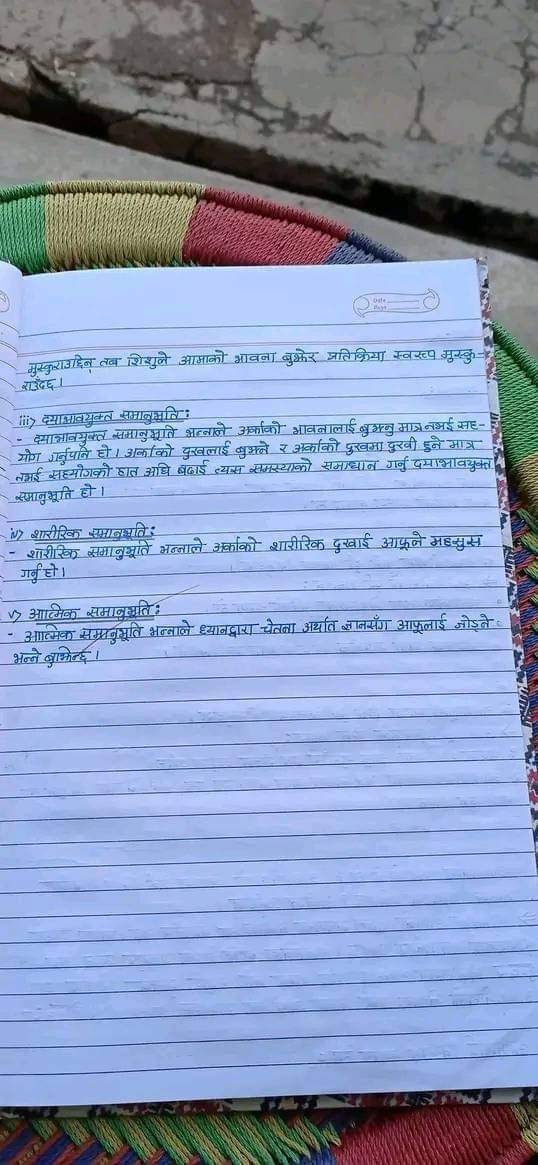 Date
Page
मुस्कुराउँछिन् तब शिशुले आमाको भावना बुझेर प्रतिक्रिया स्वरुप मुस्कु-
राउँदछ।
iii) दयाभावयुक्त समानुभूति:
- दयाभावयुक्त समानुभूति भन्नाले अर्काको भावनालाई बुझ्नु मात्र नभई सह-
योग गर्नुपनि हो। अर्काको दुखलाई बुझ्ने र अर्काको दुखमा दुखी हुने मात्र
नभई सहयोगको हात अघि बढाई त्यस समस्याको समाधान गर्नु दयाभावयुक्त
समानुभूति हो।
iv) शारीरिक समानुभूति:
- शारीरिक समानुभूति भन्नाले अर्काको शारीरिक दुखाई आफूले महसुस
गर्नु हो।
v) आत्मिक समानुभूति:
- आत्मिक समानुभूति भन्नाले ध्यानद्वारा चेतना अर्थात ज्ञानसँग आफूलाई जोड्ने
भन्ने बुझिन्छ।